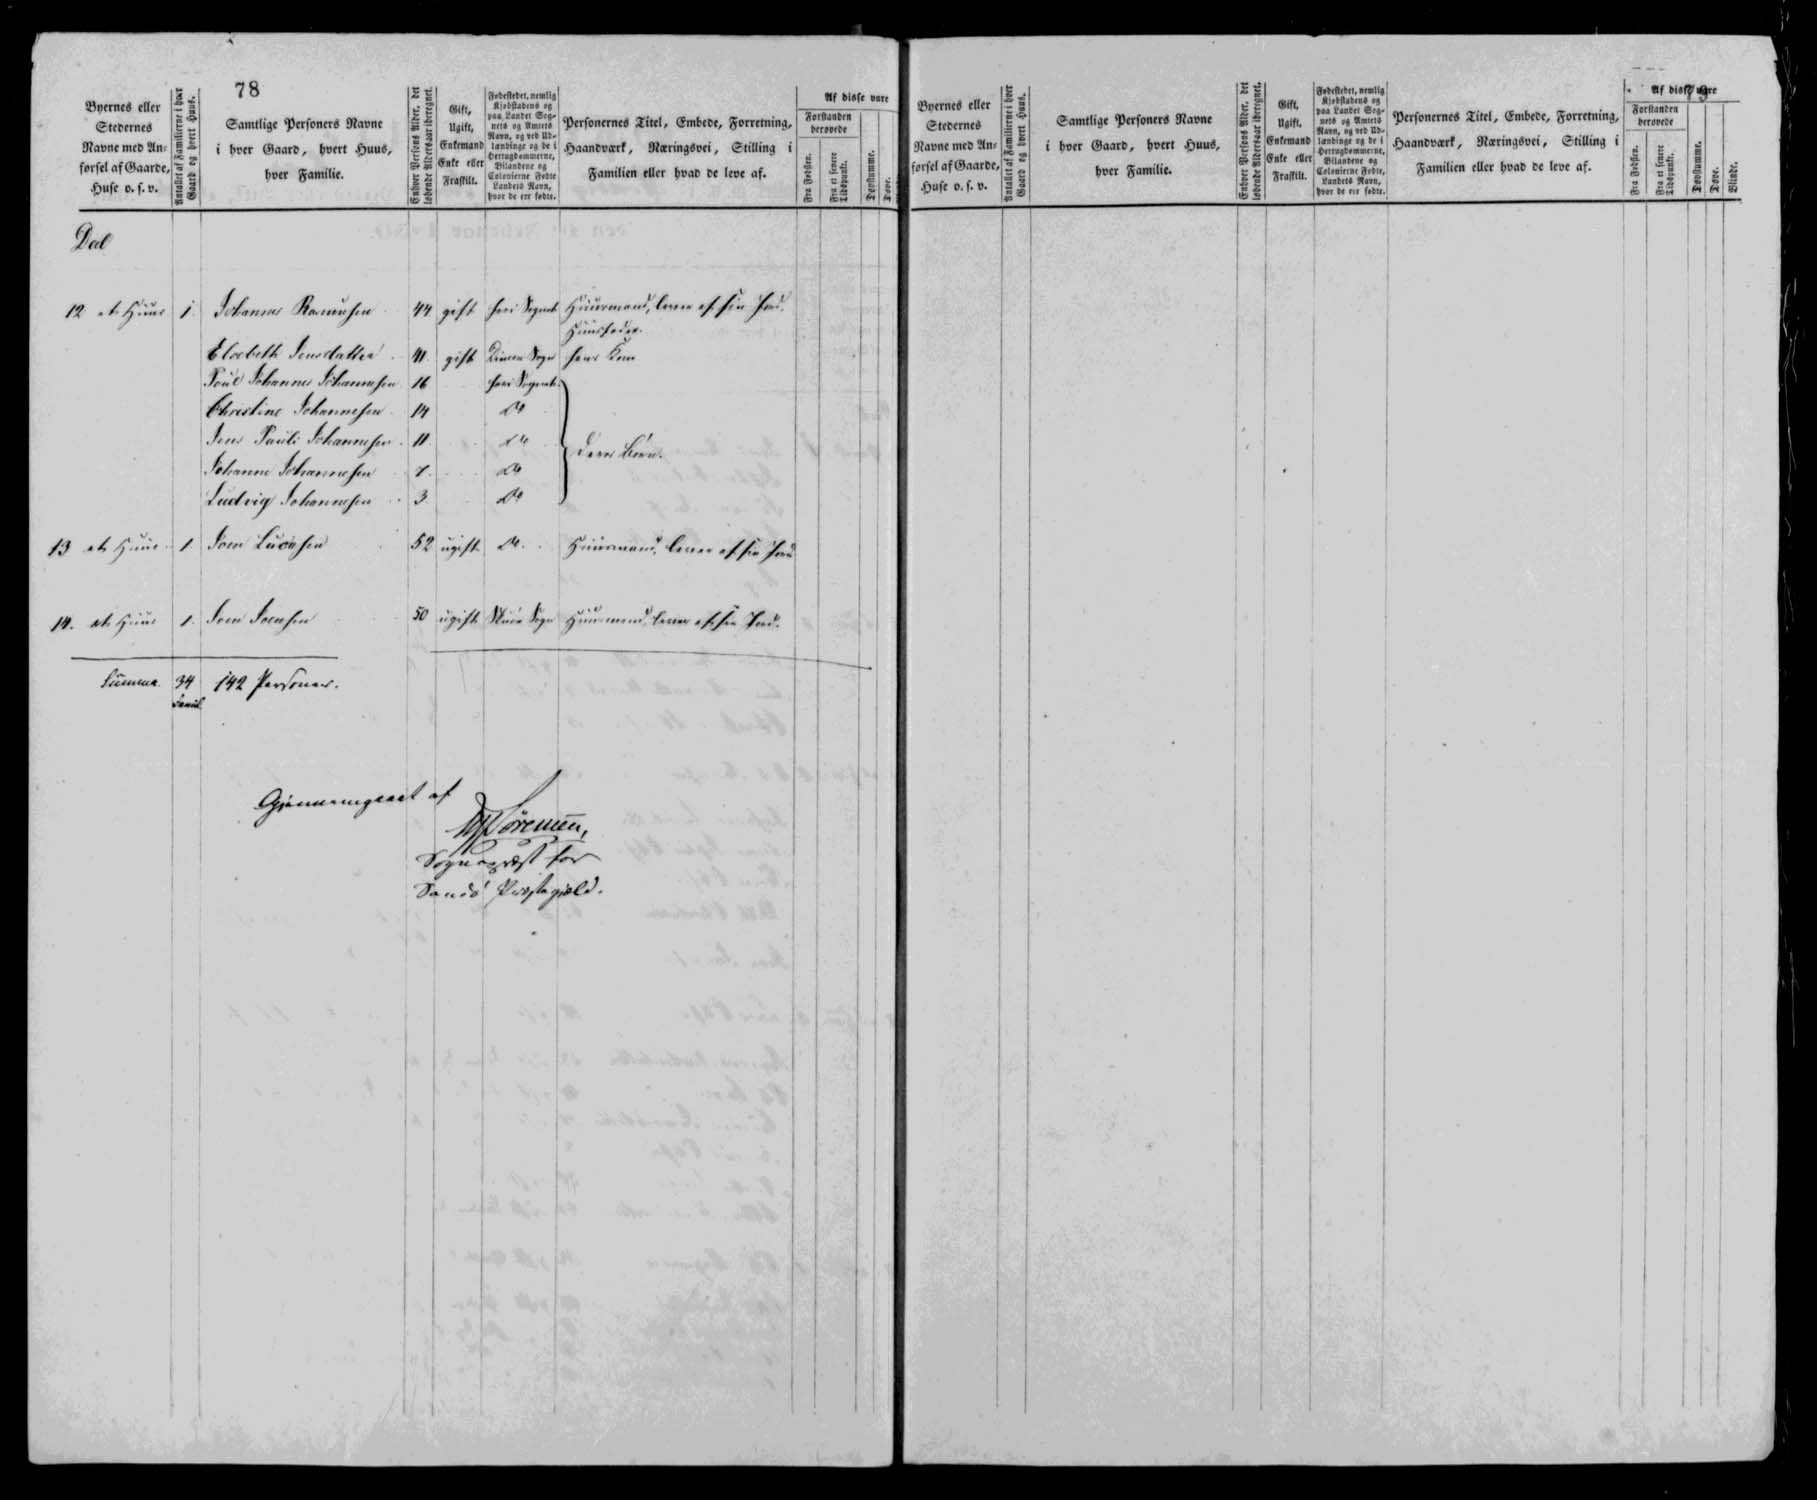 78
Byernes eller Stedernes Navne med Anførsel af Gaarde, Huse o. s. v.
Antallet af Familierne i hver Gaard og hvert Huus.
Samtlige Personers Navne i hver Gaard, hvert Huus, hver Familie.
Enhver Persons Alder, det løbende Aldersaar iberegnet.
Gift, Ugift, Enkemand Enke eller Fraskilt.
Fødestedet, nemlig Kjøbstadens og paa Landet Sognets og Amtets Navn, og ved Udlændinge og de i Hertugdømmerne, Bilandene og Colonierne Fødte Landets Navn, hvor de ere fødte.
Personernes Titel, Embede, Forretning, Haandværk, Næringsvei, Stilling i Familien eller hvad de leve af.
Af disse vare
Forstanden berøvede
Fra Fødslen.
Fra et senere Tidspunkt.
Døvstumme.
Døve.
Dal
12 et Huus 1. Johannes Rasmussen 44 gift heri Sognet Huusmand, lever af sin Jord.
Huusfader.
Elsebeth Jensdatter 41 gift Sogn hans Kone
Poul Johannes Johannesen 16 heri Sognet
Christine Johannesen 14 Do
Jens Pauli Johannesen 11 Do deres Børn.
Johanne Johannesen 7. Do
Ludvig Johannesen 3 Do
13 et Huus 1. Joen 52 ugift Do Huusmand, lever af sin Jord
14. et Huus 1. Joen Joensen 50 ugift Sogn Huusmand, lever af sin Jord.
Summa 34 142 Personer.
Famil.
Gjennemgaaet af
Sørensen,
Sognepræst for
Sandø Præstegjæld.
Byernes eller Stedernes Navne med Anførsel af Gaarde, Huse o. s. v.
Antallet af Familierne i hver Gaard og hvert Huus.
Samtlige Personers Navne i hver Gaard, hvert Huus, hver Familie.
Enhver Persons Alder, det løbende Aldersaar iberegnet.
Gift, Ugift, Enkemand Enke eller Fraskilt.
Fødestedet, nemlig Kjøbstadens og paa Landet Sognets og Amtets Navn, og ved Udlændinge og de i Hertugdømmerne, Bilandene og Colonierne Fødte, Landets Navn, hvor de ere fødte.
Personernes Titel, Embede, Forretning, Haandværk, Næringsvei, Stilling i Familien eller hvad de leve af.
Af disse vare
Forstanden berøvede
Fra Fødslen.
Fra et senere Tidspunkt.
Døvstumme.
Døve.
Blinde.